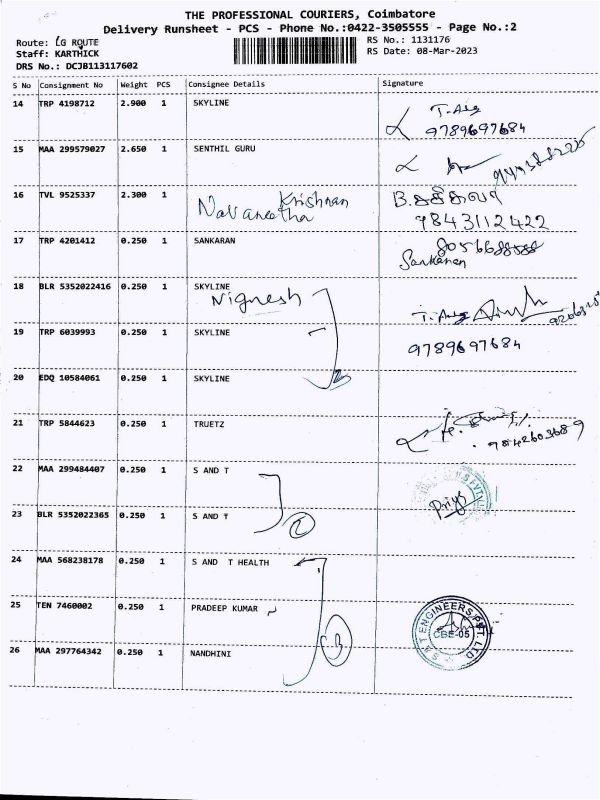 THE PROFESSIONAL COURIERS, Coimbatore
Delivery Runsheet - PCS - Phone No.:0422-3505555 - Page No.:2
Route: LG ROUTE
Staff: KARTHICK
DRS No.: DCJB113117602
RS No.: 1131176
RS Date: 08-Mar-2023
S No Consignment No Weight PCS Consignee Details Signature
14 TRP 4198712 2.900 1 SKYLINE
9789697684
15 MAA 299579027 2.650 1 SENTHIL GURU
16 TVL 9525337 2.300 1 Navaneetha Krishnan
9843112422
17 TRP 4201412 0.250 1 SANKARAN
Sankaran
18 BLR 5352022416 0.250 1 SKYLINE
Vignesh
19 TRP 6039993 0.250 1 SKYLINE 9789697684
20 EDQ 10584061 0.250 1 SKYLINE
21 TRP 5844623 0.250 1 TRUETZ
9842603689
22 MAA 299484407 0.250 1 S AND T
Priya
23 BLR 5352022365 0.250 1 S AND T
2
24 MAA 568238178 0.250 1 S AND T HEALTH
25 TEN 7460002 0.250 1 PRADEEP KUMAR
3
S A T ENGINEERS PVT. LTD
CBE-05
26 MAA 297764342 0.250 1 NANDHINI